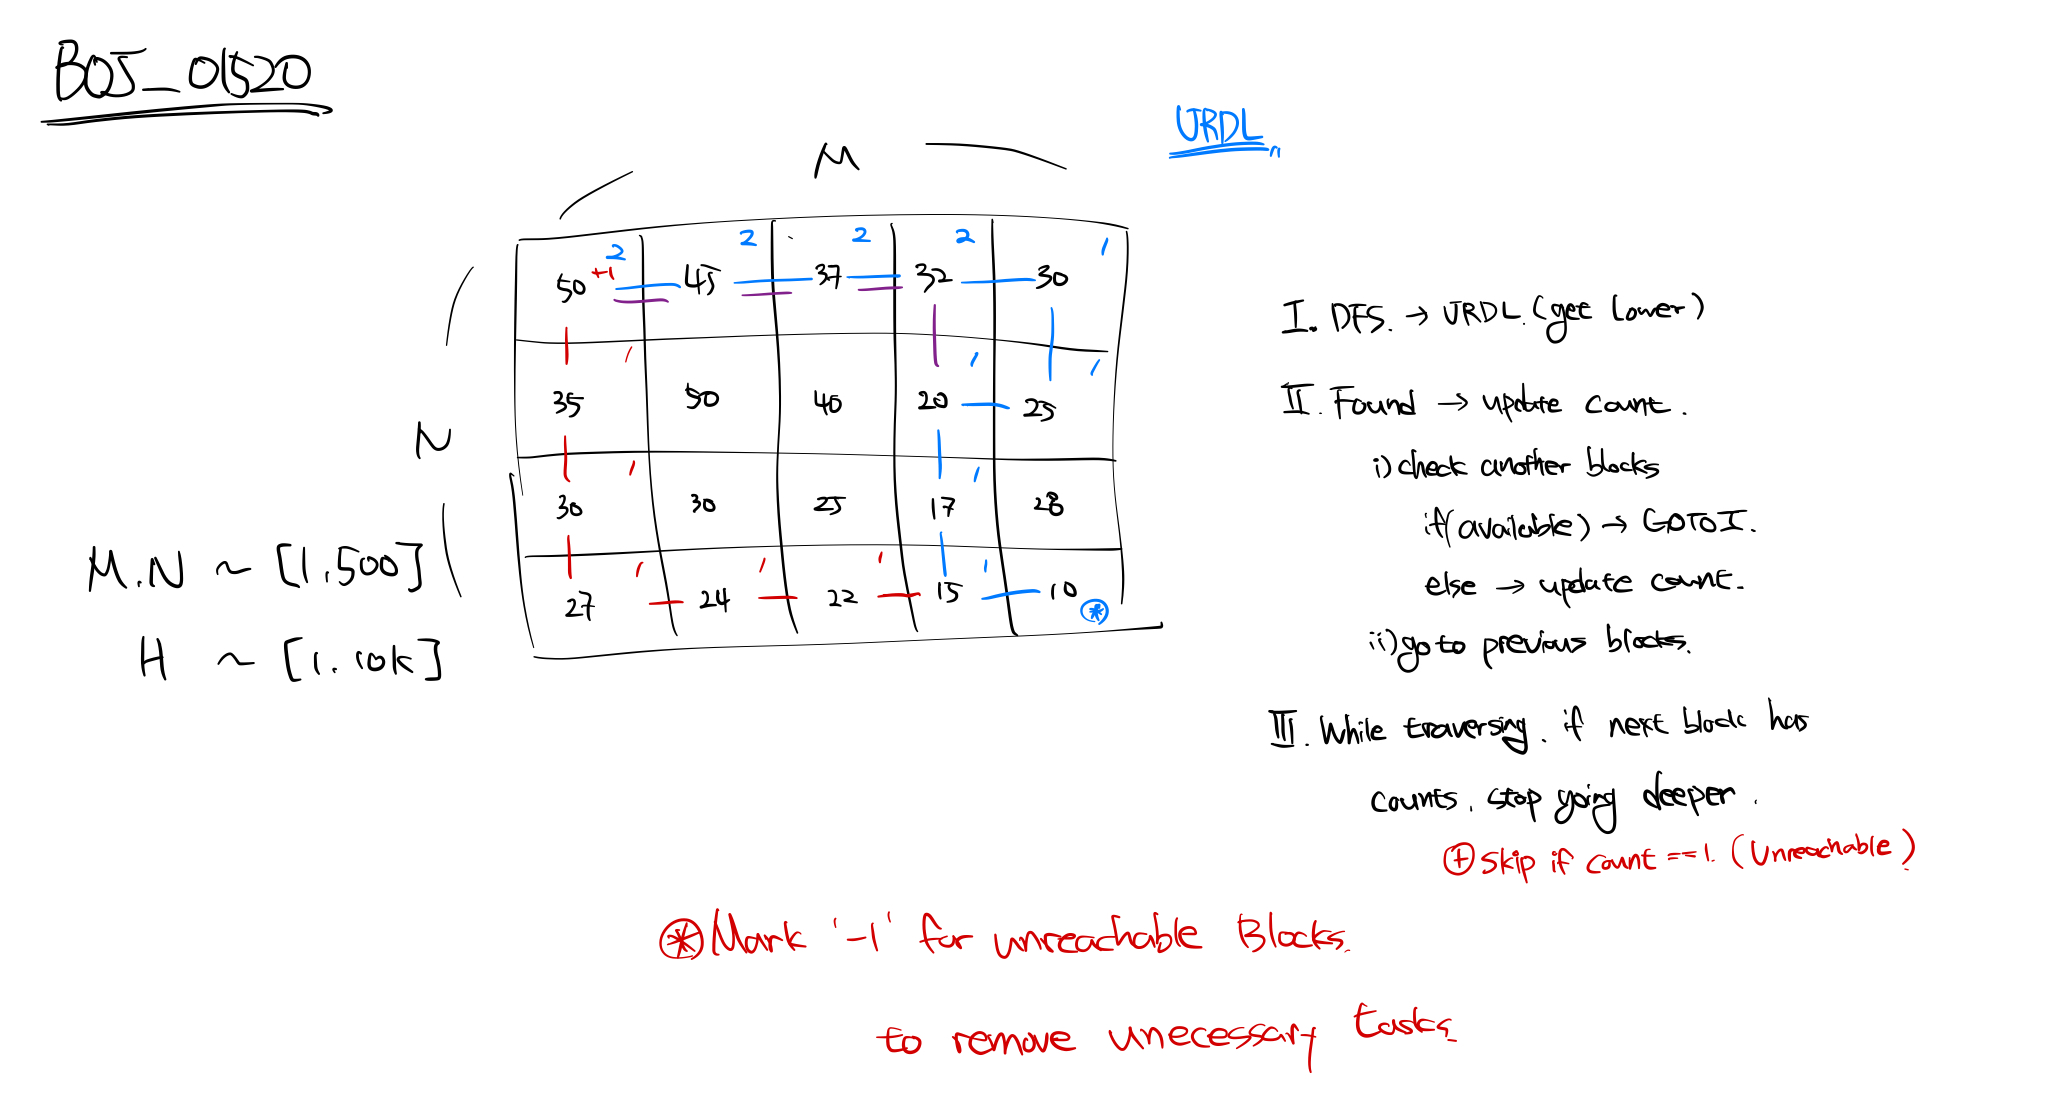 BOJ_01520
URDL
M
2 2 2 2 1
50 +1 45 37 32 30
1 1 1
35 50 40 20 25
N
1 1
30 30 25 17 28
M.N ~ [1.500]
1 1 1 1
27 24 22 15 10 *
H ~ [1.10k]
I. DFS. → URDL. (get lower)
II. Found → update count.
i) check another blocks
if(available) → GOTO I.
else → update count.
ii) go to previous blocks.
III. While traversing. if next block has
counts. stop going deeper.
⊕ skip if count == 1. (Unreachable)
⊛ Mark '-1' for unreachable Blocks.
to remove unecessary tasks.